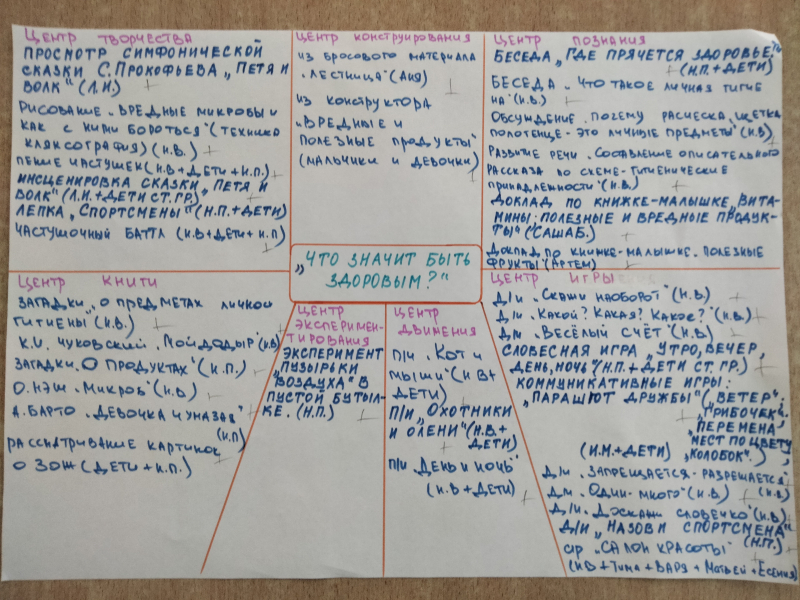 ЦЕНТР ТВОРЧЕСТВА
ПРОСМОТР СИМФОНИЧЕСКОЙ
СКАЗКИ С. ПРОКОФЬЕВА „ПЕТЯ И
ВОЛК" (Л.И.)
РИСОВАНИЕ „ВРЕДНЫЕ МИКРОБЫ И
КАК С НИМИ БОРОТЬСЯ" (ТЕХНИКА
КЛЯКСОГРАФИЯ) (Н.В.)
ПЕНИЕ ЧАСТУШЕК (Н.В + ДЕТИ + Н.П.)
ИНСЦЕНИРОВКА СКАЗКИ „ПЕТЯ И
ВОЛК" (Л.И. + ДЕТИ СТ. ГР.)
ЛЕПКА „СПОРТСМЕНЫ" (Н.П. + ДЕТИ)
ЧАСТУШОЧНЫЙ БАТТЛ (Н.В + ДЕТИ + Н.П)
ЦЕНТР КОНСТРУИРОВАНИЯ
ИЗ БРОСОВОГО МАТЕРИАЛА
„ЛЕСТНИЦА" (АНЯ)
ИЗ КОНСТРУКТОРА
„ВРЕДНЫЕ И
ПОЛЕЗНЫЕ ПРОДУКТЫ"
(МАЛЬЧИКИ И ДЕВОЧКИ)
ЦЕНТР ПОЗНАНИЯ
БЕСЕДА „ГДЕ ПРЯЧЕТСЯ ЗДОРОВЬЕ?"
(Н.П. + ДЕТИ)
БЕСЕДА „ЧТО ТАКОЕ ЛИЧНАЯ ГИГИЕ
НА" (Н.В.)
ОБСУЖДЕНИЕ „ПОЧЕМУ РАСЧЕСКА, ЩЕТКА
ПОЛОТЕНЦЕ - ЭТО ЛИЧНЫЕ ПРЕДМЕТЫ" (Н.В)
РАЗВИТИЕ РЕЧИ „СОСТАВЛЕНИЕ ОПИСАТЕЛЬНОГО
РАССКАЗА ПО СХЕМЕ - ГИГИЕНИЧЕСКИЕ
ПРИНАДЛЕЖНОСТИ" (Н.В.)
ДОКЛАД ПО КНИЖКЕ-МАЛЫШКЕ „ВИТА-
МИНЫ: ПОЛЕЗНЫЕ И ВРЕДНЫЕ ПРОДУК-
ТЫ" (САША Б.)
ДОКЛАД ПО КНИЖКЕ-МАЛЫШКЕ „ПОЛЕЗНЫЕ
ФРУКТЫ" (АРТЕМ)
„ЧТО ЗНАЧИТ БЫТЬ
ЗДОРОВЫМ?"
ЦЕНТР КНИГИ
ЗАГАДКИ „О ПРЕДМЕТАХ ЛИЧНОЙ
ГИГИЕНЫ (Н.В.)
К.И. ЧУКОВСКИЙ „МОЙДОДЫР" (Н.В)
ЗАГАДКИ „О ПРОДУКТАХ" (Н.П.)
О. НЭШ „МИКРОБ" (Н.В)
А. БАРТО „ДЕВОЧКА ЧУМАЗАЯ"
(Н.П)
РАССМАТРИВАНИЕ КАРТИНОК
О ЗОЖ (ДЕТИ + Н.П.)
ЦЕНТР
ЭКСПЕРИМЕН-
ТИРОВАНИЯ
ЭКСПЕРИМЕНТ
„ПУЗЫРЬКИ
ВОЗДУХА" В
ПУСТОЙ БУТЫЛ-
КЕ. (Н.П.)
ЦЕНТР
ДВИЖЕНИЯ
П/И „КОТ И
МЫШИ" (Н.В +
ДЕТИ)
П/И „ОХОТНИКИ
И ОЛЕНИ" (Н.В. +
ДЕТИ)
П/И „ДЕНЬ И НОЧЬ"
(Н.В + ДЕТИ)
ЦЕНТР ИГРЫ
Д/И „СКАЖИ НАОБОРОТ" (Н.В.)
Д/И „КАКОЙ? КАКАЯ? КАКОЕ?" (Н.В.)
Д/И „ВЕСЁЛЫЙ СЧЁТ" (Н.В.)
СЛОВЕСНАЯ ИГРА „УТРО, ВЕЧЕР,
ДЕНЬ, НОЧЬ" (Н.П. + ДЕТИ СТ. ГР.)
КОММУНИКАТИВНЫЕ ИГРЫ:
„ПАРАШЮТ ДРУЖБЫ" („ВЕТЕР",
„ГРИБОЧЕК",
„ПЕРЕМЕНА
МЕСТ ПО ЦВЕТУ",
(И.М. + ДЕТИ) „КОЛОБОК".)
Д/И „ЗАПРЕЩАЕТСЯ - РАЗРЕШАЕТСЯ"
(Н.В.)
Д/И „ОДИН - МНОГО" (Н.В)
Д/И „ДОСКАЖИ СЛОВЕЧКО" (Н.В)
Д/И „НАЗОВИ СПОРТСМЕНА"
(Н.П.)
С/Р „САЛОН КРАСОТЫ"
(Н.В + ТИМА + ВАРЯ + МАТВЕЙ + ЕСЕНИЯ)